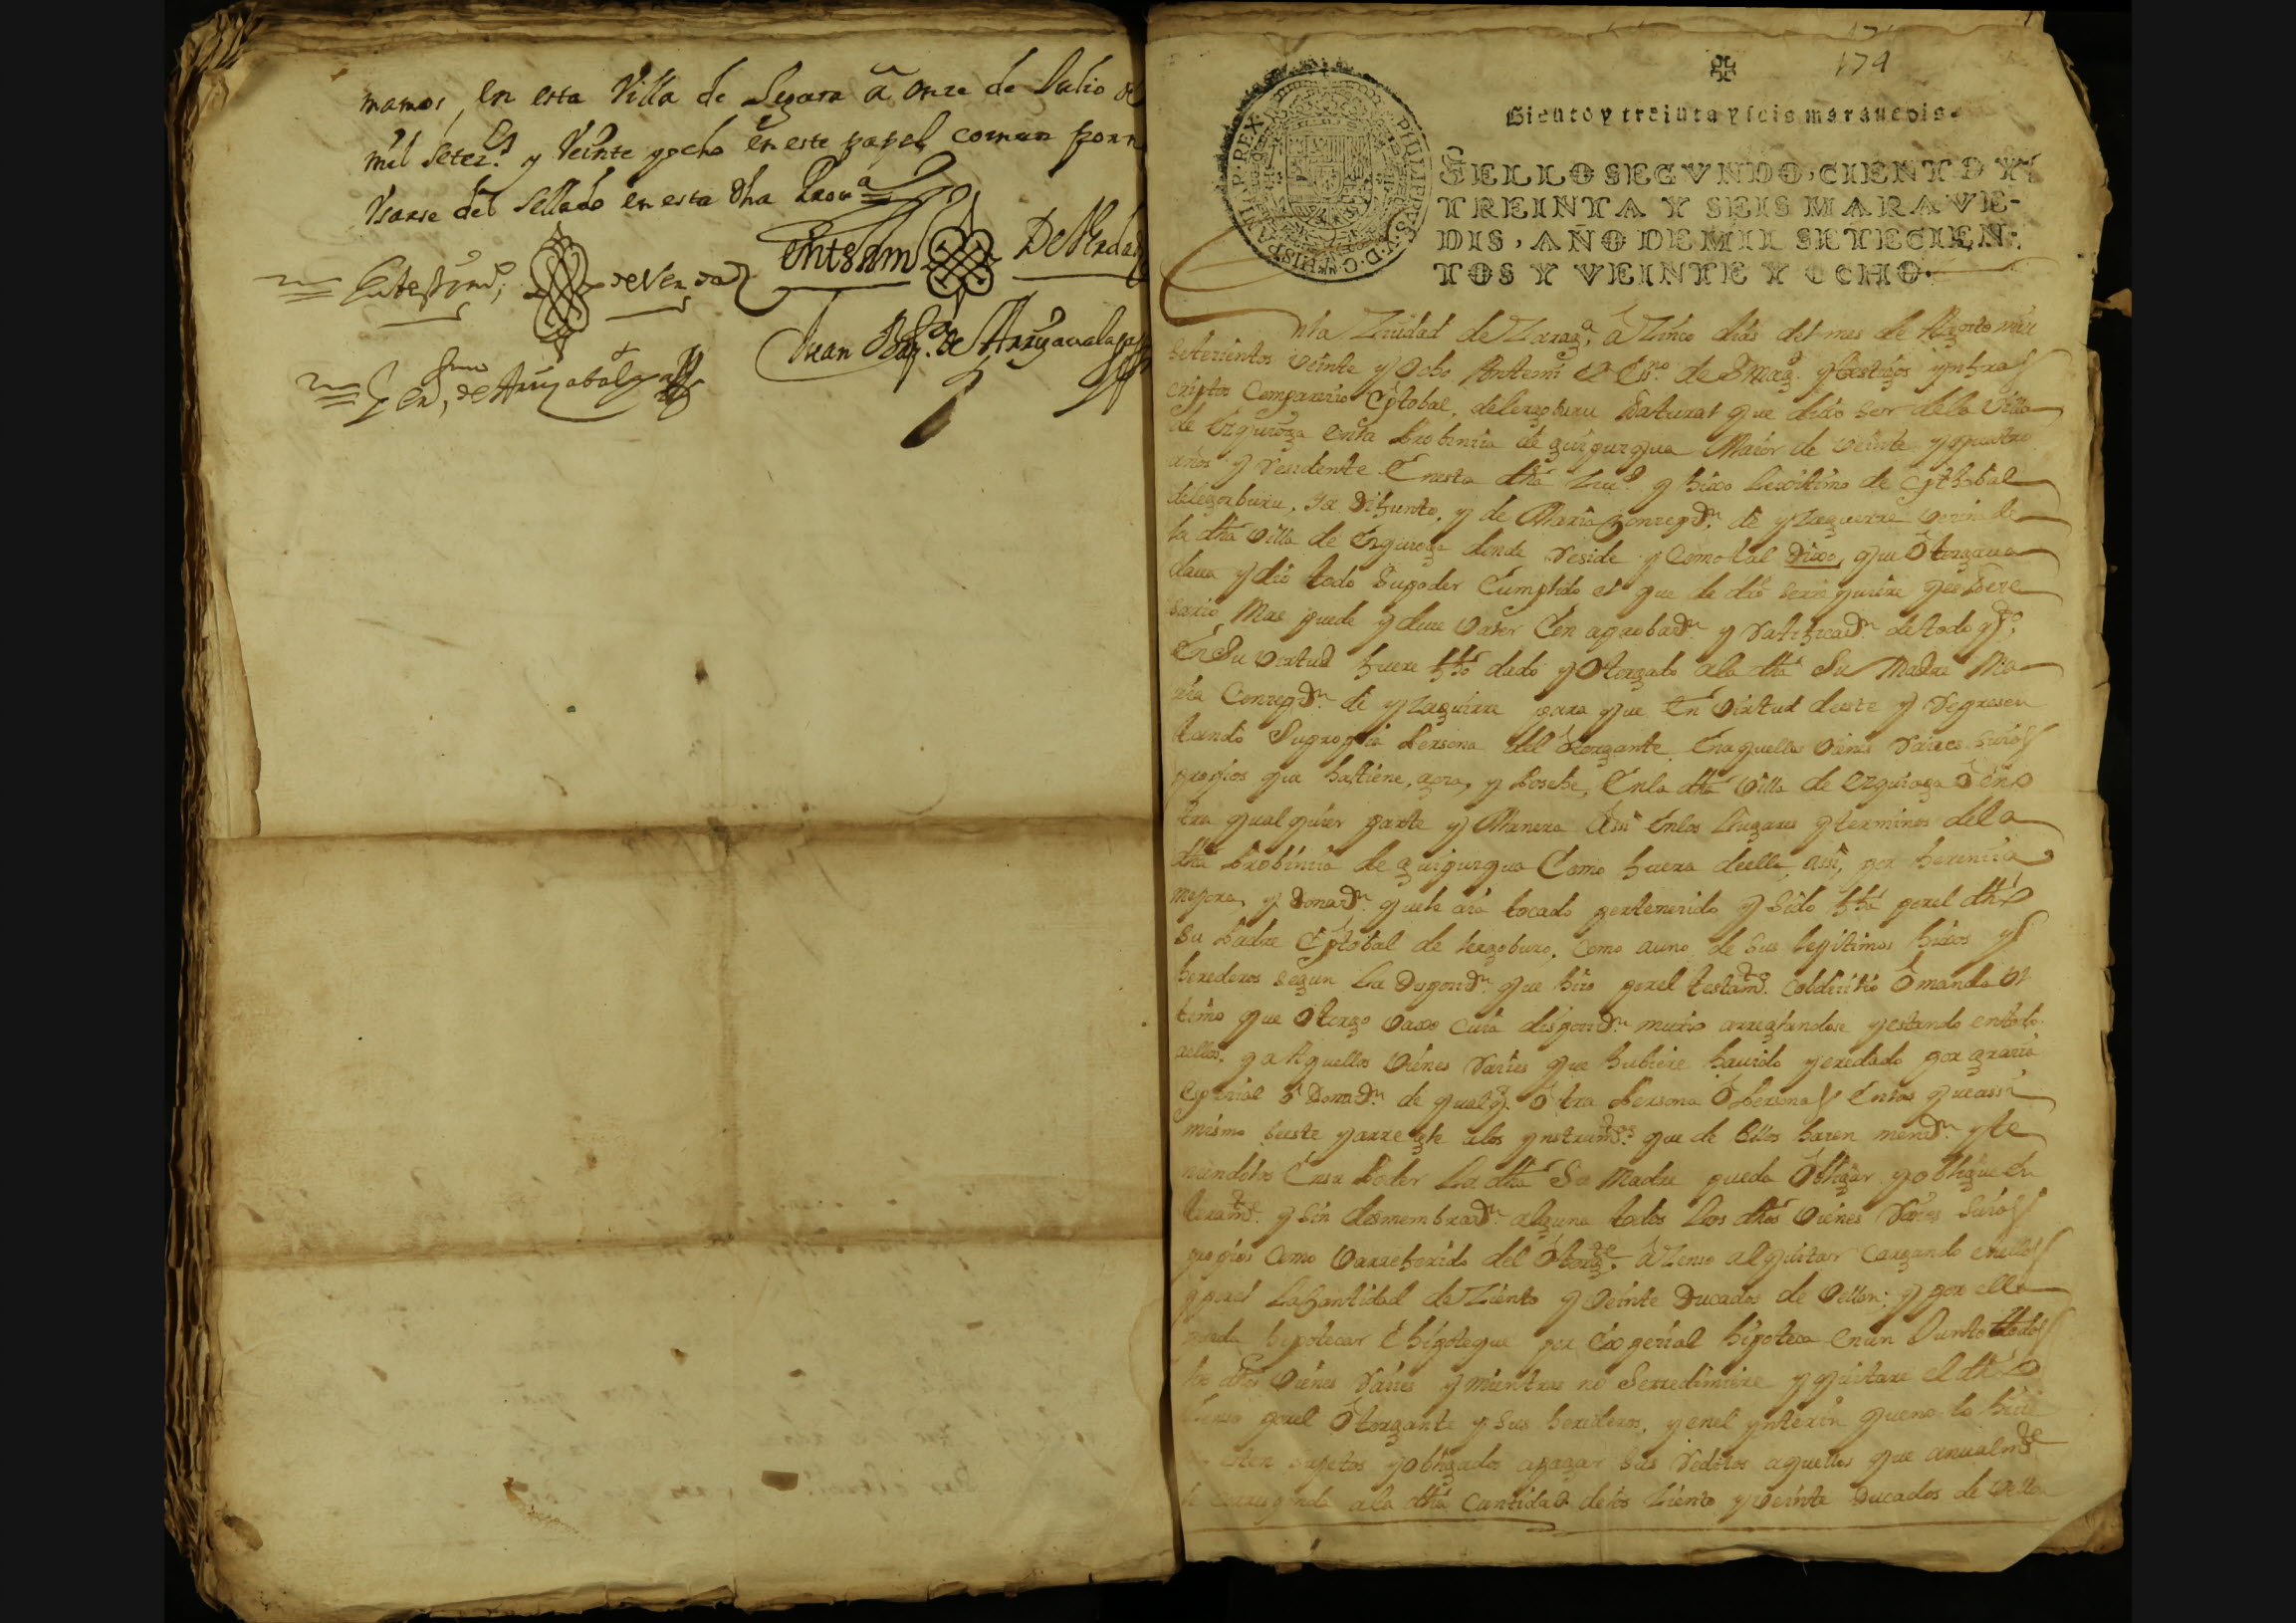 mamos, en esta Villa de Segara â onze de Julio de
mil setez.s y Veinte y ocho en este papel comun porn
Vsarse del Sellado en esta dha Prou.a
En testim.o de Verdad
En testim.o De Verdad
Juan Bap.ta de Arryzavalaga
174
Ciento y treinta y seis marauedis.
SELLO SEGVNDO, CIENTO Y
TREINTA Y SEIS MARAVE-
DIS, AÑO DE MIL SETECIEN-
TOS Y VEINTE Y OCHO.
PHILIPPVS V D G HISPANIAR REX
nla Ziudad de Zarag.a â Zinco dias del mes de Agosto mill
setecientos Veinte y Ocho Antemi el Ess.no de Su Mag.d y testigos ynfras
criptos Comparezio Cptobal delezoburu Natural que dixo ser dela Villa
de Ezquioga enla Probinzia de guipuzqua Maior de Veinte y quatro
años y residente Enesta dha Ziu.d y hixo Lexitimo de Cpthobal
delezorburu, ya Difunto, y de Maria Conzepn de yzaguirre vezin de
la dha Villa de Ezquioga donde reside y Como tal Dixo, que Otorgaua
daua y dio todo Supoder Cumplido el que de dro serrequiere y es neze
sario Mas puede y deue valer Con aprobaon y ratificaon de todo q.to
En Su virtud fuere fho dado y Otorgado ala dha Su Madre Ma
ria Conzepon de yzaguirre para que En Virtud deeste y represen
tando Supropia Persona del Otorgante Enaquellos vienes raices suios
propios que hastiene, agora, y Poshehe, Enla dha Villa de Ezquioga O en o
tra qualquier parte y Manera Asi Enlos Lugares y terminos dela
dha Probinzia de guipuzqua Como fuera deella, assi, por herenzia
mejora, y Donaon que le aia tocado pertenezido y sido fha por el dho
su Padre Cptobal de lezoburo, como auno de sus legitimos hixos y
herederos segun La Disposion que hizo por el testam.to Cobdizilio O manda Ul
timo que Otorgo vaxo cuia disposion murio arreglandose y estando entodo
aellos, y a Aquellos vienes raizes que hubiere hauido y eredado por grazia
Espezial o Donaon de qualq.r Otra Persona O Personas Enlos que assi
mismo seeste y arregle alos ynstrum.tos que de Ellos hazen menon y te
niendolos Ensu Poder La dha Su Madre pueda Obligar y obligue En
teram.te y sin desmembraon alguna todos Los dhos vienes raizes suios
propios como varreferido del Otorg.te â Zenso alquitar cargando enellos
y porel La Cantidad de Ziento y Veinte Ducados de Vellon; y por ello
pueda hipotecar E hipoteque por Expezial hipoteca Enun Punto todos
los dhos vienes raizes y mientras no Serredimiere y quitare el dho
Zenso porel Otorgante y sus herederos, y enel ynterin queno lo hizie
esten sujetos y obligados apagar sus reditos aquellos que anualm.te
le corresponda ala dha Cantidad delos Ziento y veinte Ducados de Vellon